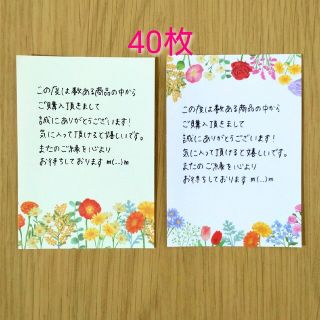 40枚
この度は数ある商品の中から
ご購入頂きまして
誠にありがとうございます！
気に入って頂けると嬉しいです。
またのご縁を心より
お待ちしております m(__)m
この度は数ある商品の中から
ご購入頂きまして
誠にありがとうございます！
気に入って頂けると嬉しいです。
またのご縁を心より
お待ちしております m(__)m